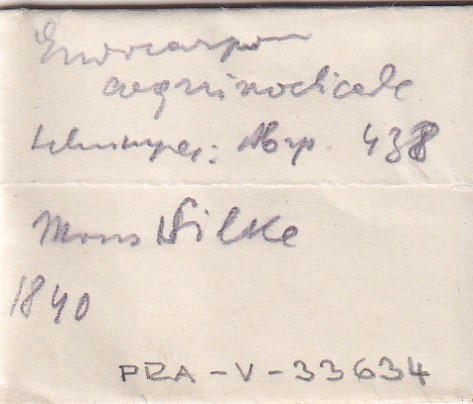 Endocarpon
aequinoctiale
Schimper: Abyp. 438
Mons Silke
1840
PRA-V-33634